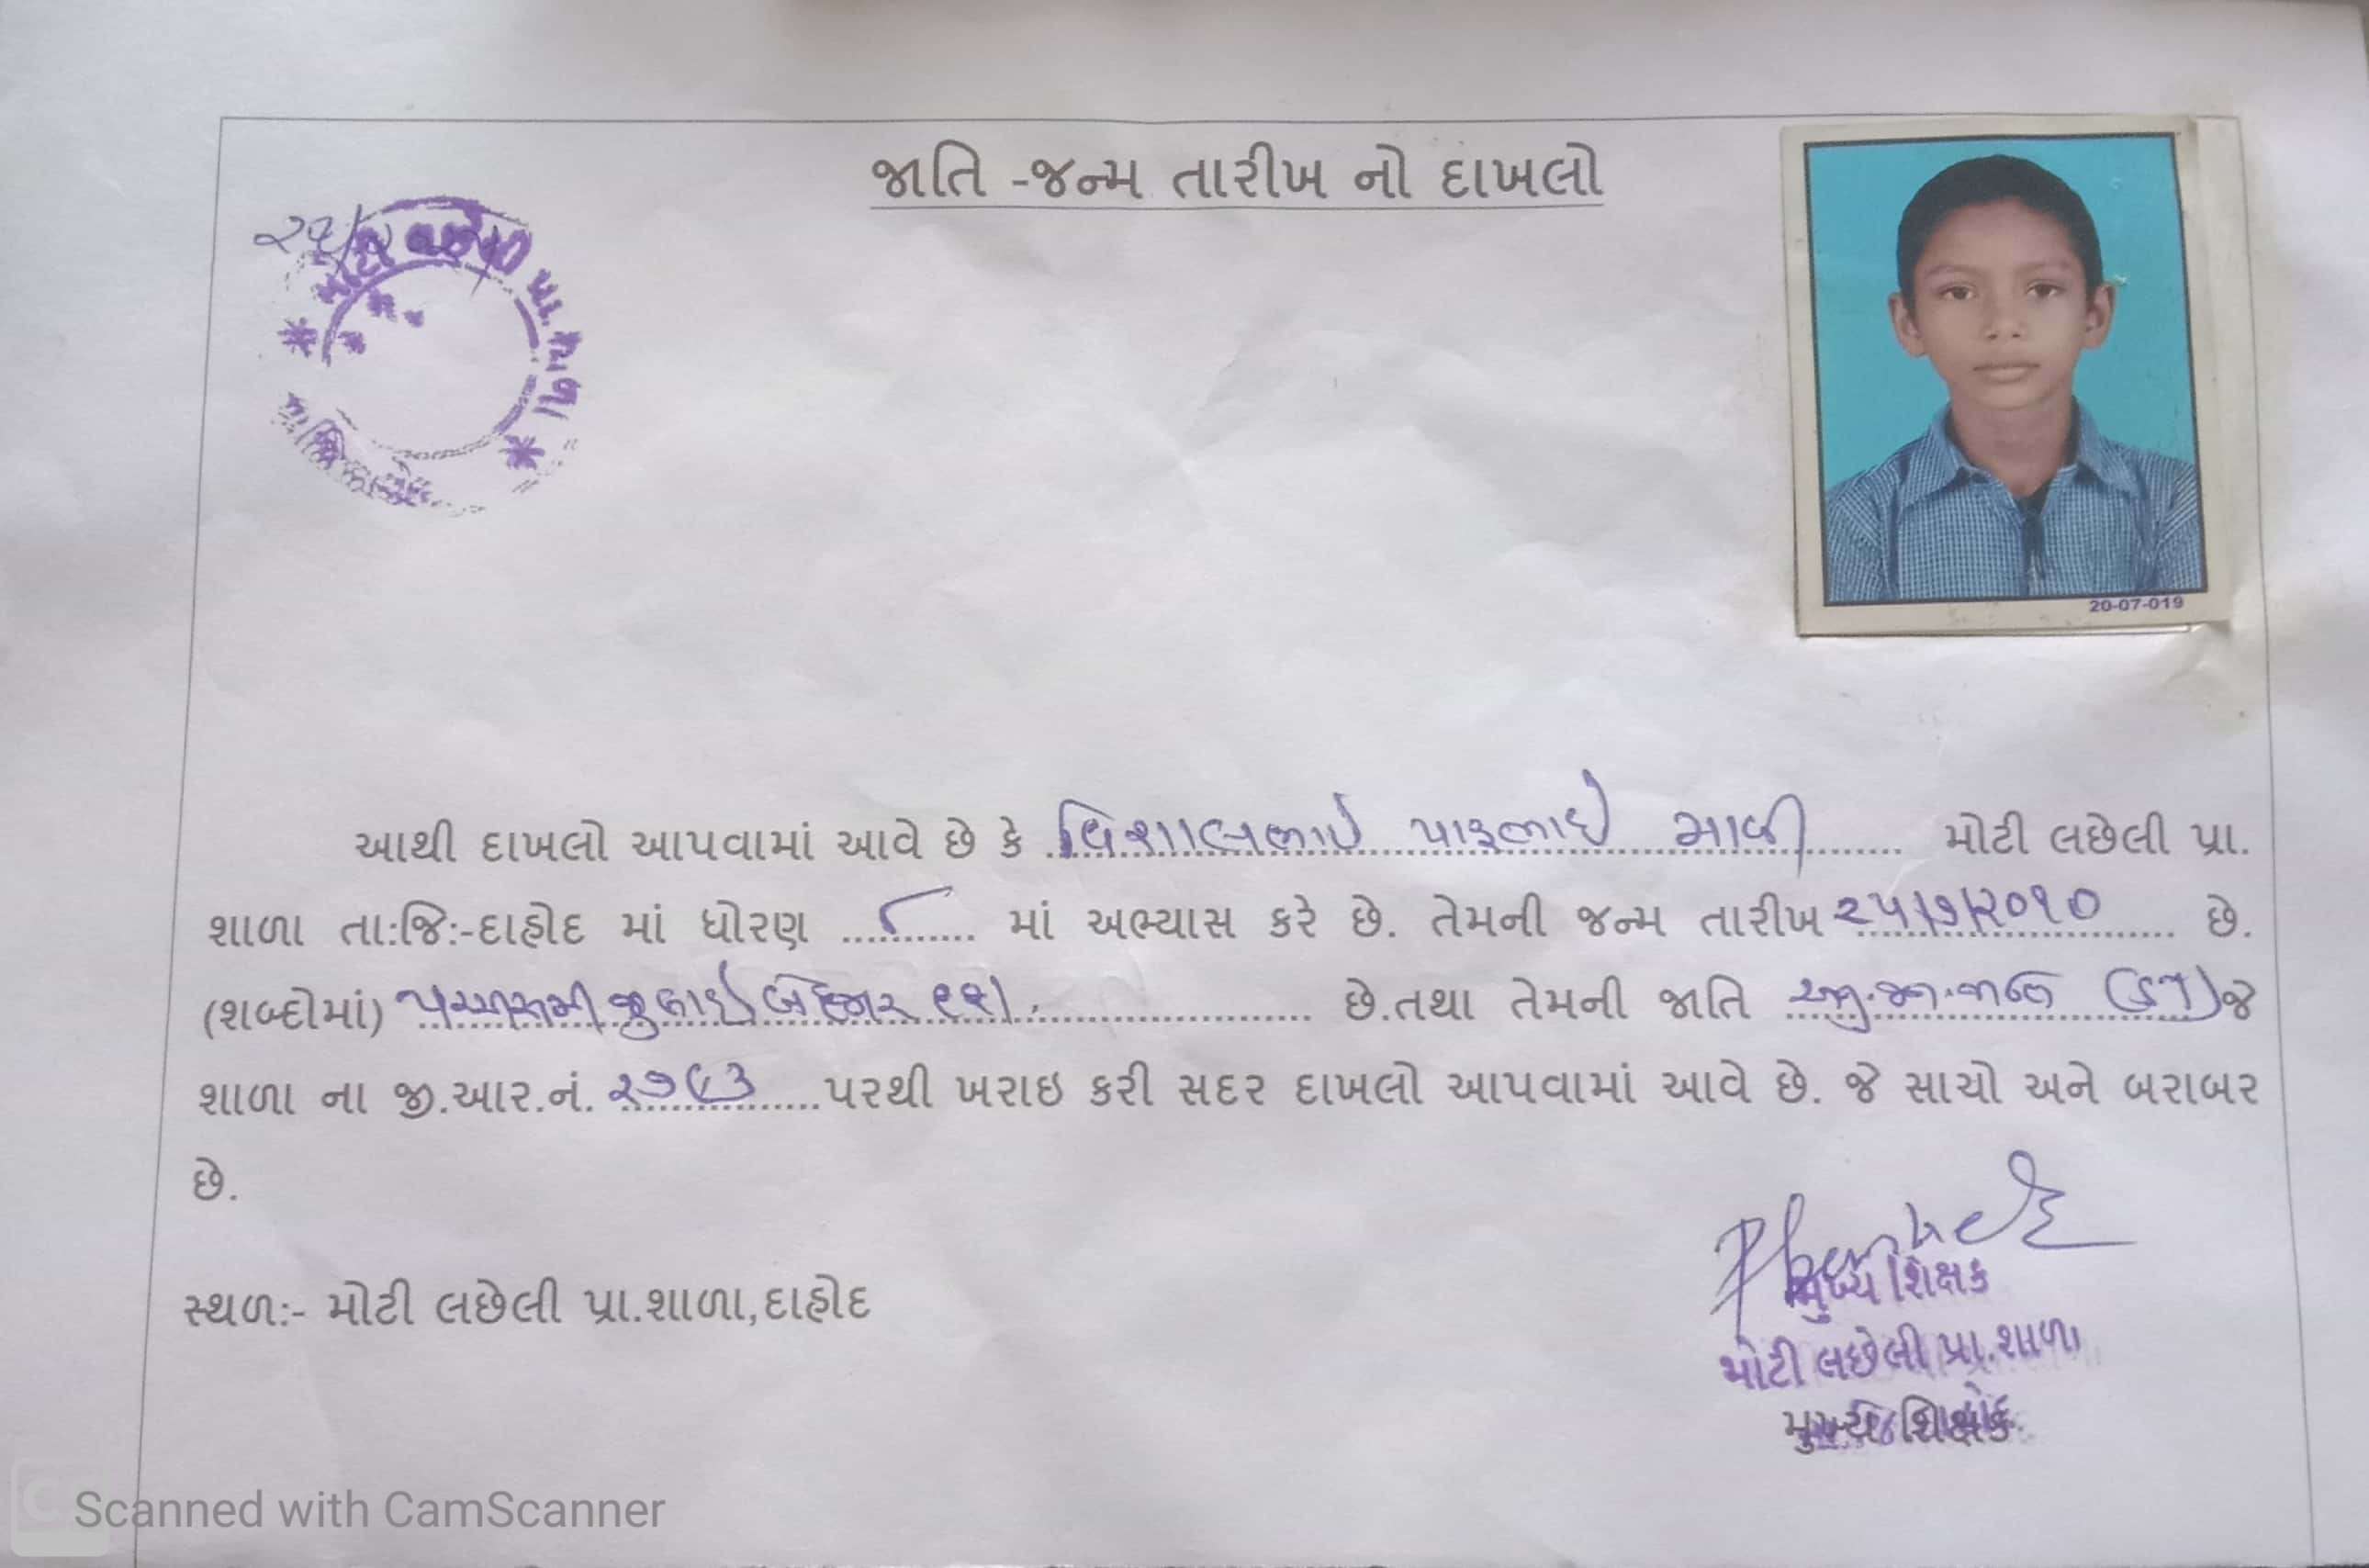 જાતિ -જન્મ તારીખ નો દાખલો
પ્રા. શાળા
20-07-019
આથી દાખલો આપવામાં આવે છે કે વિશાલભાઈ મોટી લછેલી પ્રા.
શાળા તા:જિ:-દાહોદ માં ધોરણ ૮ માં અભ્યાસ કરે છે. તેમની જન્મ તારીખ ૨૫/૭/૨૦૧૦ છે.
(શબ્દોમાં) પચ્ચીસમી જુલાઈ બે હજાર દશ. છે.તથા તેમની જાતિ અનુ.જન.જાતિ (ST) જે
શાળા ના જી.આર.નં. પરથી ખરાઇ કરી સદર દાખલો આપવામાં આવે છે. જે સાચો અને બરાબર
છે.
સ્થળ:- મોટી લછેલી પ્રા.શાળા,દાહોદ
મુખ્ય શિક્ષક
મોટી લછેલી પ્રા.શાળા
મુખ્ય શિક્ષક
Scanned with CamScanner